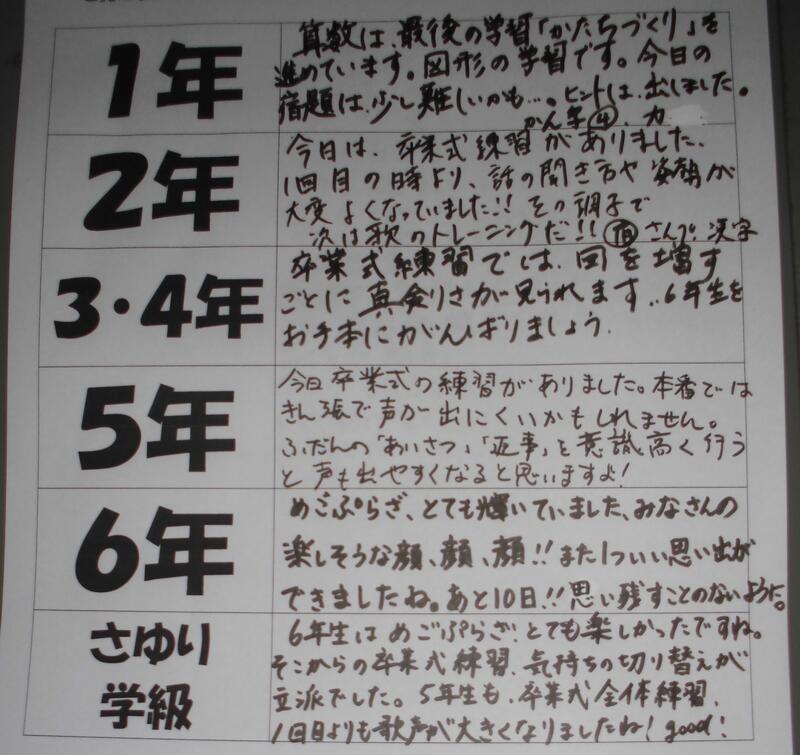 1年
算数は、最後の学習「かたちづくり」を
進めています。図形の学習です。今日の
宿題は、少し難しいかも…。ヒントは、出しました。
かん字④、カ
2年
今日は、卒業式練習がありました、
1回目の時より、話の聞き方や姿勢が
大変よくなっていました!!その調子で
次は歌のトレーニングだ!!宿さんプ、漢字
3・4年
卒業式練習では、回を増す
ごとに真剣さが見られます。6年生を
お手本にがんばりましょう。
5年
今日卒業式の練習がありました。本番では
きん張で声が出にくいかもしれません。
ふだんの「あいさつ」「返事」を意識高く行う
と声も出やすくなると思いますよ!
6年
めごぷらざ、とても輝いていました、みなさんの
楽しそうな顔、顔、顔!!また1ついい思い出が
できましたね。あと10日!!思い残すことのないように。
さゆり
学級
6年生はめごぷらざ、とても楽しかったですね。
そこからの卒業式練習、気持ちの切り替えが
立派でした。5年生も、卒業式全体練習、
1回目よりも歌声が大きくなりましたね!good!